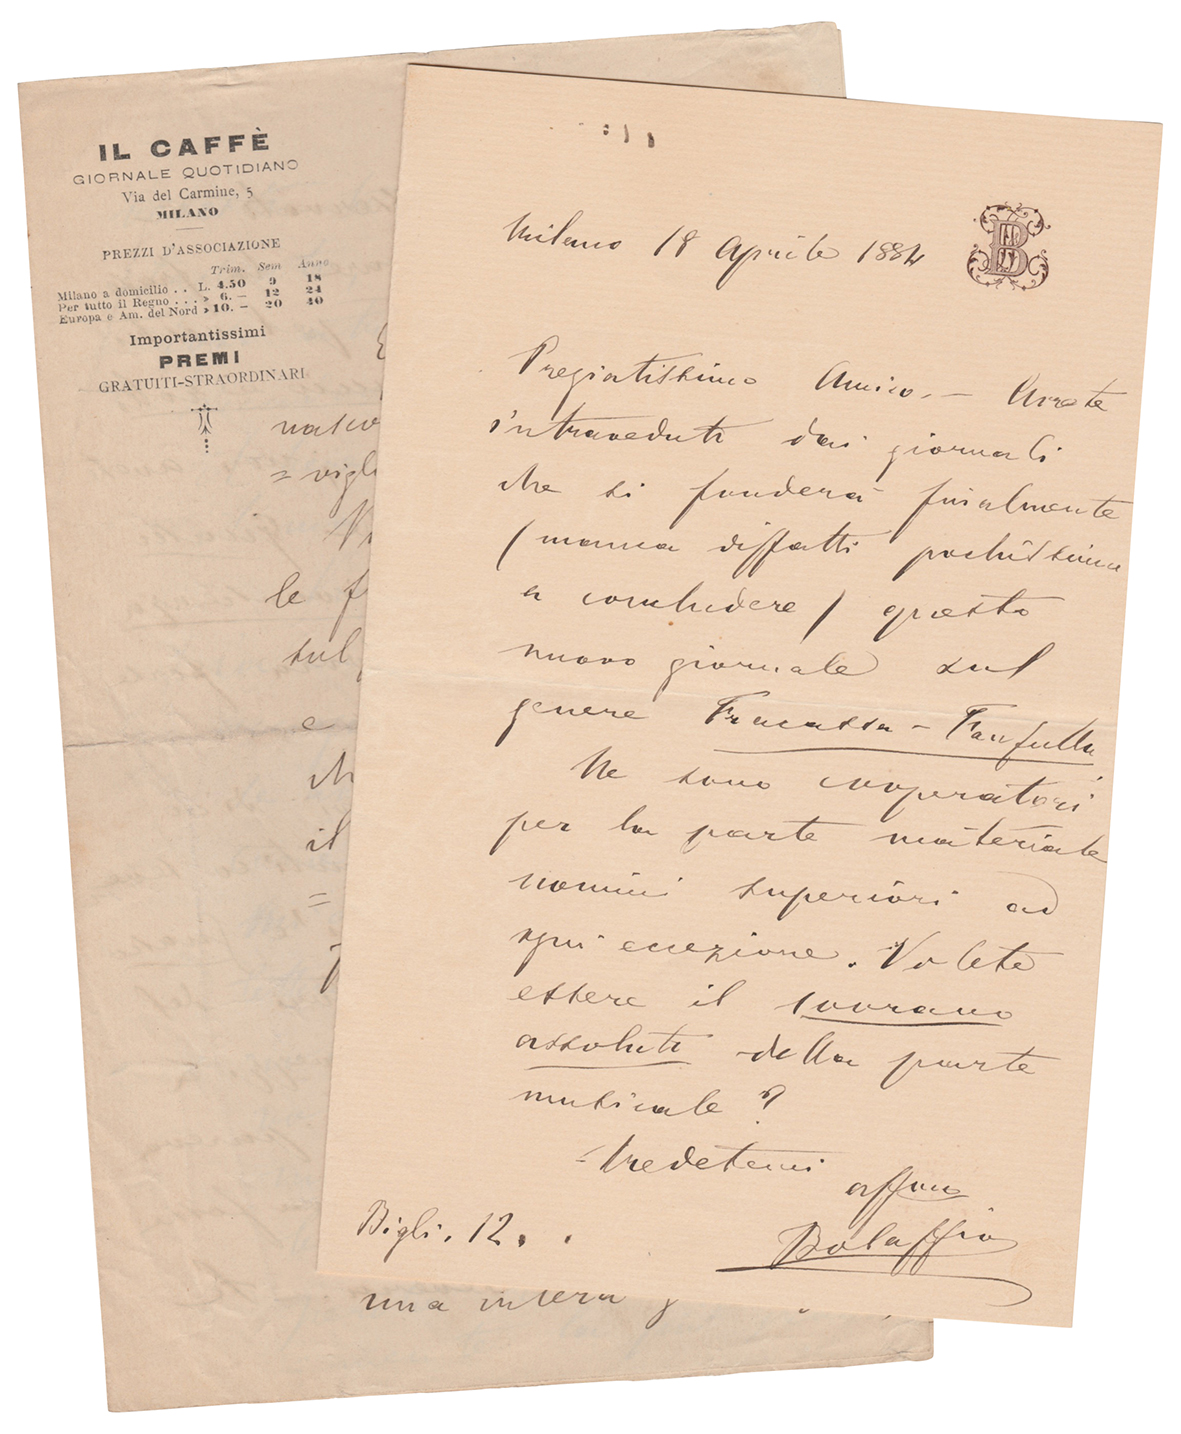 IL CAFFÈ
GIORNALE QUOTIDIANO
Via del Carmine, 5
MILANO
PREZZI D'ASSOCIAZIONE
Trim. Sem Anno
Milano a domicilio . . L. 4.50 9 18
Per tutto il Regno . . . > 6.— 12 24
Europa e Am. del Nord > 10.— 20 40
Importantissimi
PREMI
GRATUITI-STRAORDINARI
le f
sul
e
il
=
una intera g
B
Milano 18 Aprile 1884
Pregiatissimo Amico. — Avrete
intraveduto dai giornali
che si fonderà finalmente
(manca diffatti pochissimo
a concludere) questo
nuovo giornale sul
genere Fracassa - Fanfulla
Ne sono cooperatori
per la parte materiale
uomini superiori ad
ogni eccezione. Volete
essere il sovrano
assoluto della parte
musicale?
Credetemi
affmo
Bolaffio
Bigli. 12.